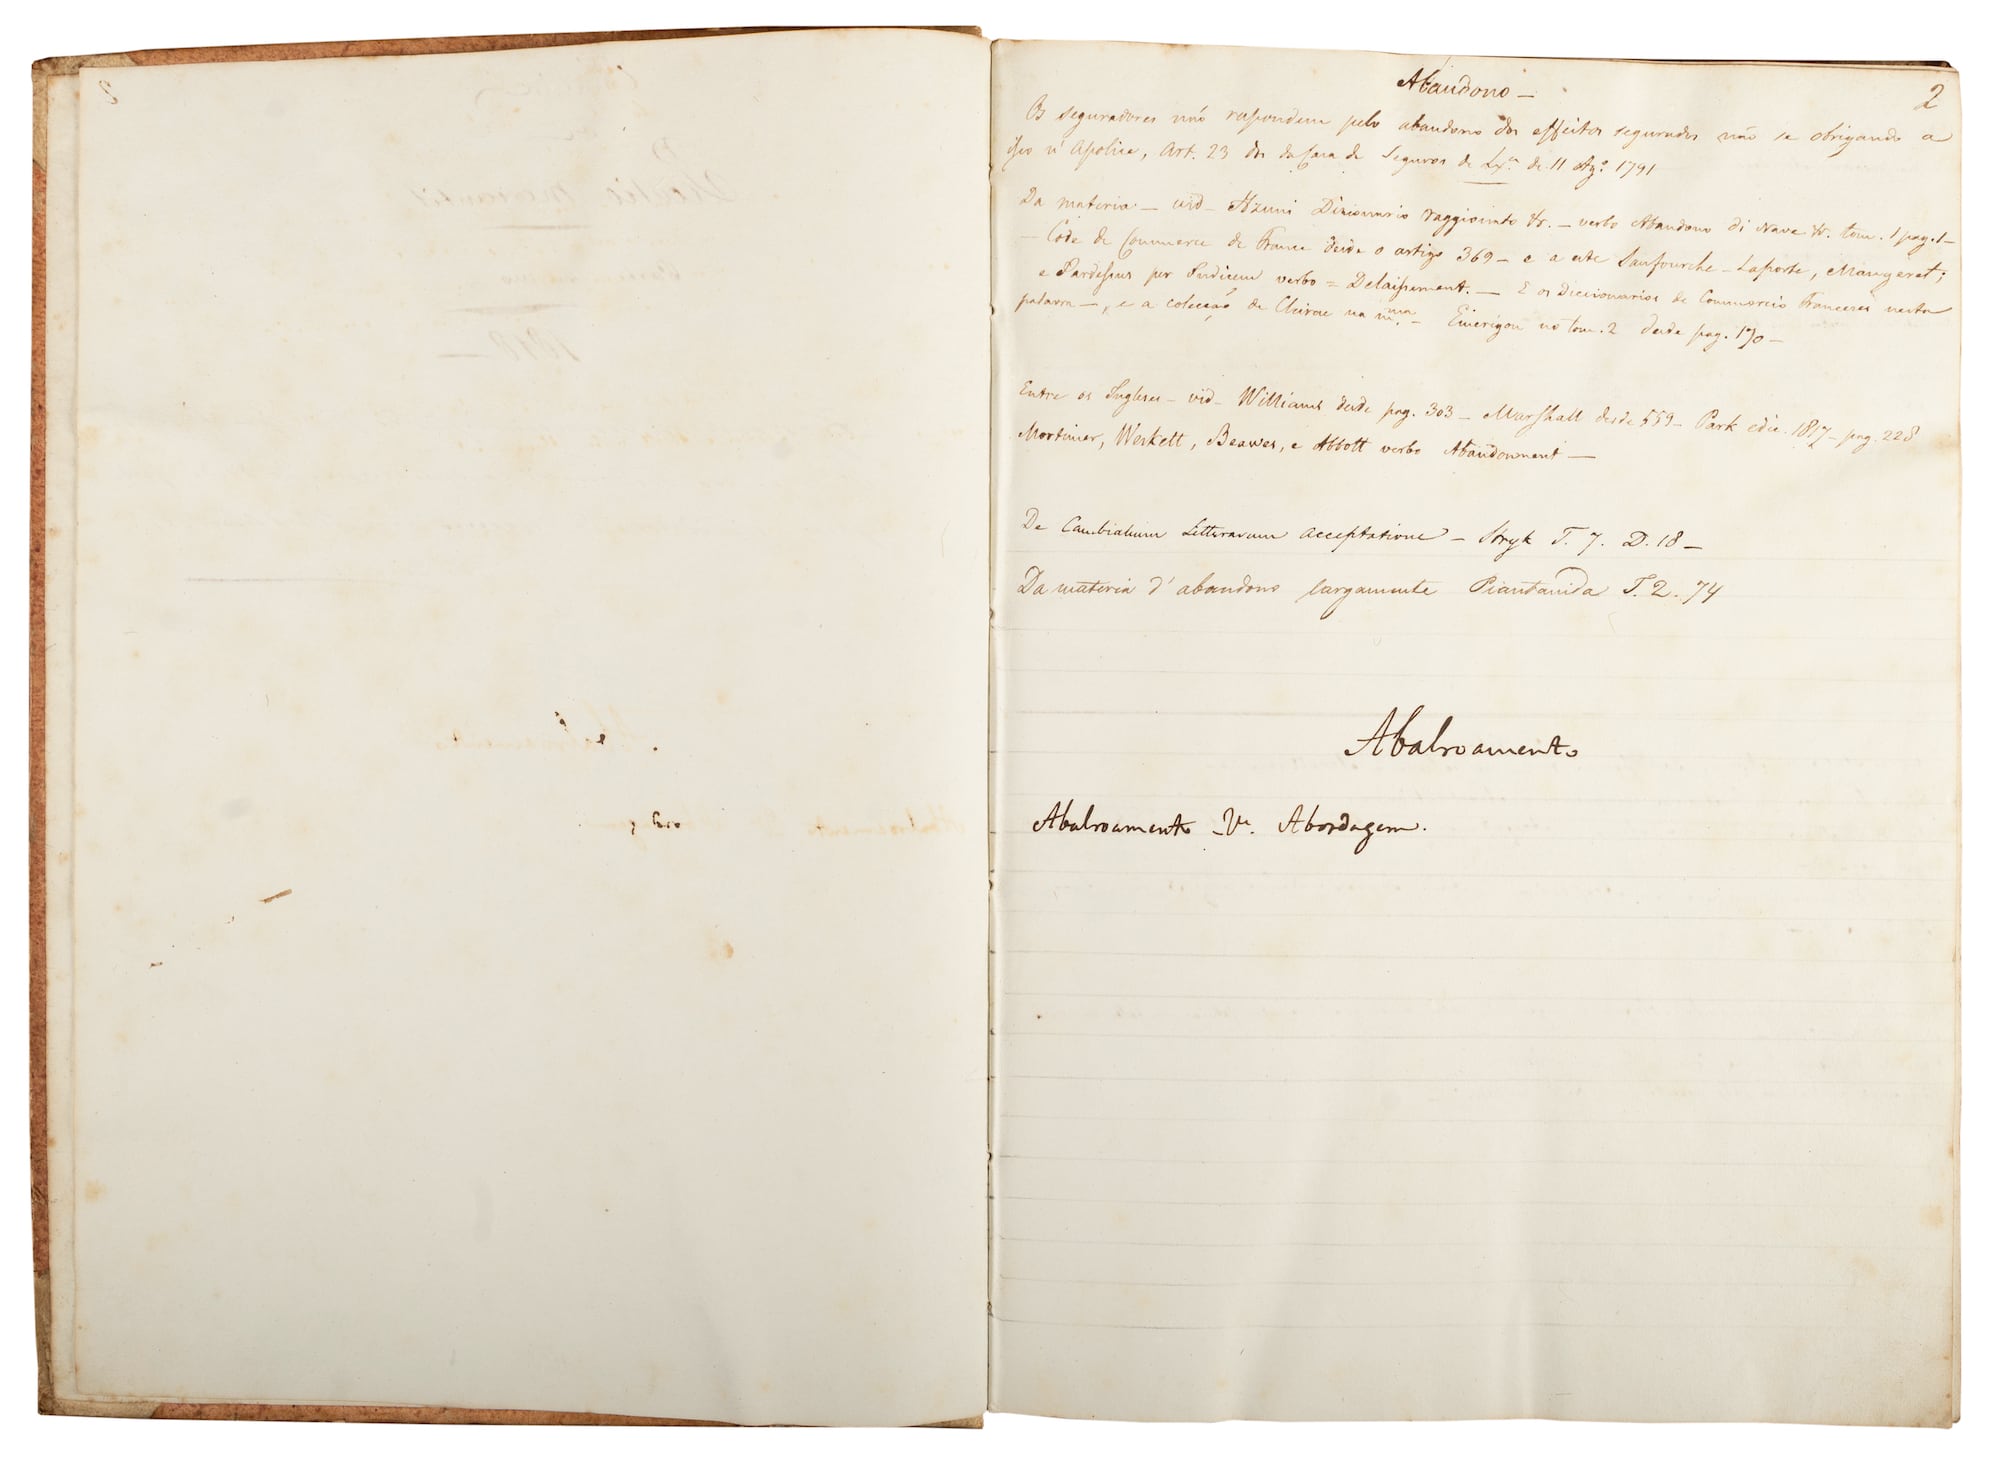 2
Abandono —
Os seguradores não respondem pelo abandono dos effeitos segurados não se obrigando a
isso n'Apolice, Art. 23 das da Casa de Seguros de Lxª de 11 Agº 1791
Da materia — vid — Azuni Dizionario raggionato &. — verbo Abandono di Nave &. tom. 1 pag. 1 —
— Code de Commerce de France desde o artigo 369 — e a este Sanfourche - Laporte, Maugeret;
e Pardessus per Indicem verbo = Delaissement. — E os Diccionarios de Commercio Francezes nesta
palavra —, e a colecção de Clirac na mma. — Emerigon no tom. 2 desde pag. 170 —
Entre os Inglezes — vid — Williams desde pag. 303 — Marshall desde 559 — Park edic. 1817 — pag. 228
Mortimer, Weskett, Beawes, e Abbott verbo Abandonment —
De Cambialium Litterarum acceptatione — Stryk T. 7. D. 18 —
Da materia d'abandono largamente Piantanida T. 2. 74
Abalroamento
Abalroamento — Vde. Abordagem.